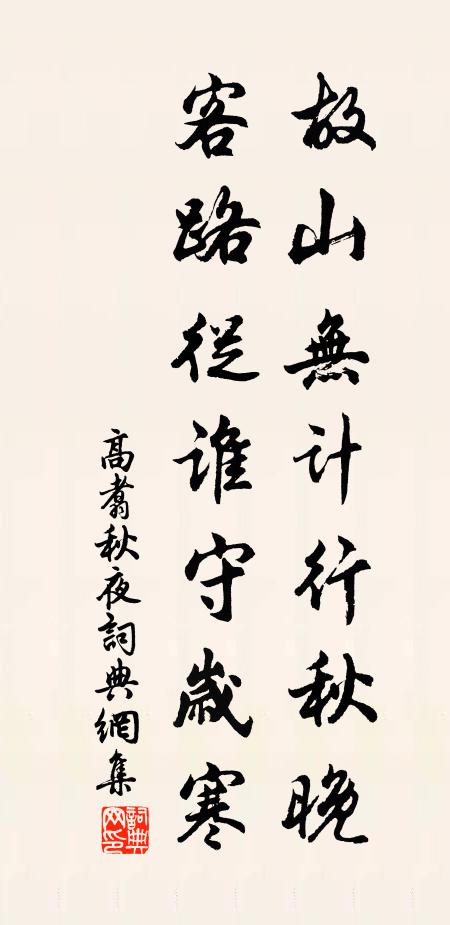 故山無計行秋晚
客路從誰守歲寒
高翥秋夜詞典網集
詞典網印